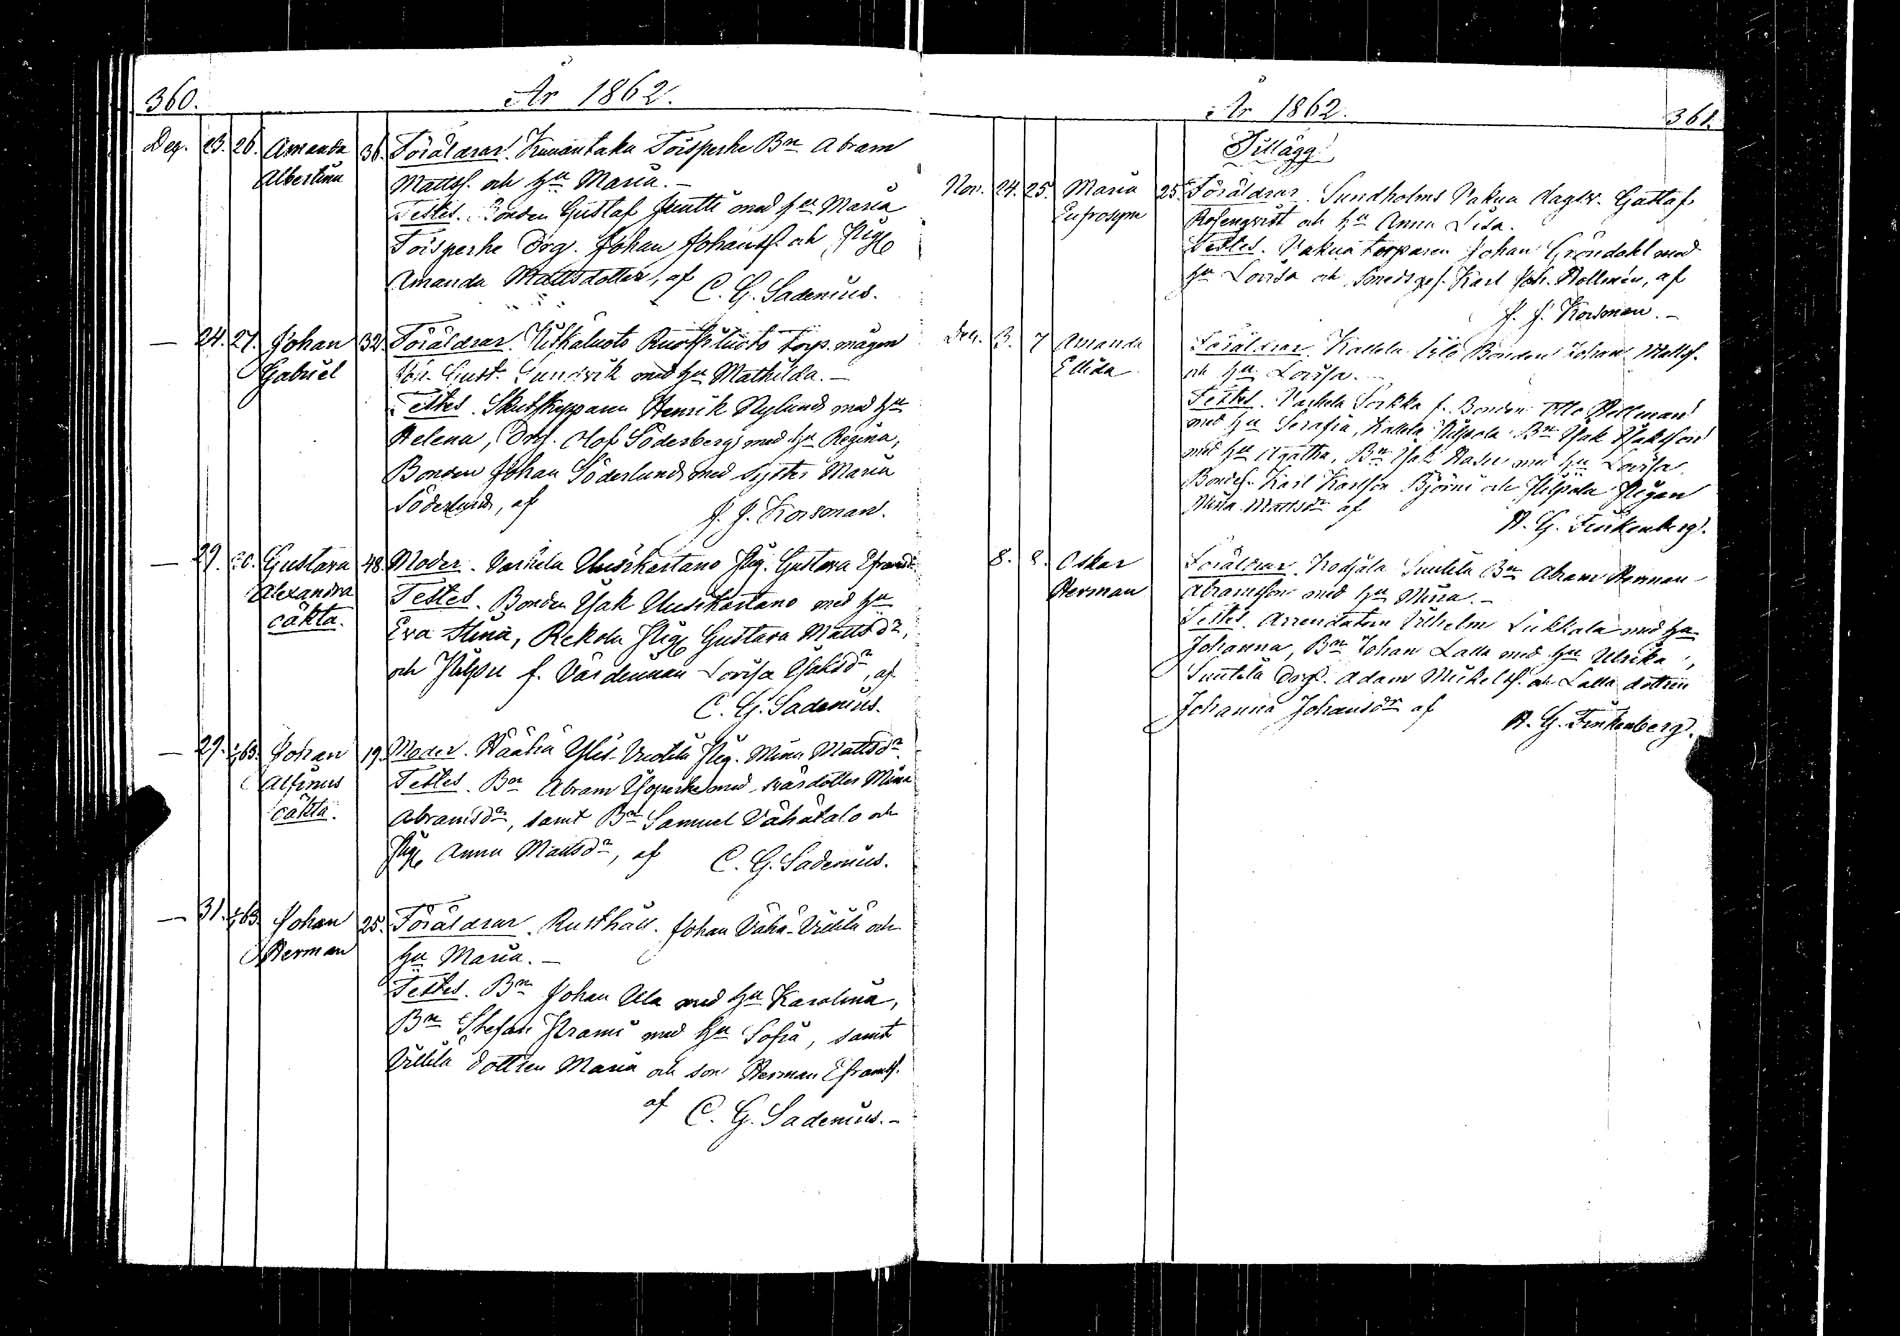 360. År 1862.
Dec. 23. 26. Amanda Albertina 36. Föräldrar. Toisperhe Bn Abram
Mattss. och hu Maria. –
Testes. Bonden Gustaf Juntti med hu Maria
Toisperhe Drg. Johan Johanss. och Pig.
Amanda Mattsdotter, af C. G. Sadenius.
— 24. 27. Johan Gabriel 32. Föräldrar. Torp. mågen
Joh. Gust. Sundvik med hu Mathilda. –
Testes. Skutskepparen Henrik Nylund med hu
Helena, Drg. Olof Söderberg med hu Regina,
Bonden Johan Söderlund med syster Maria
Söderlund, af J. J. Korsman.
— 29. 30. Gustava Alexandra oäkta. 48. Moder. Varhela Uusikartano Pig. Gustava
Testes. Bonden Isak Uusikartano med hu
Eva Stina, Rekola Pig. Gustava Mattsdr,
och f. Värdinnan Lovisa Isaksdr, af
C. G. Sadenius.
— 29. 63. Johan Alfinus oäkta. 19. Moder. Pig. Mina Mattsdr.
Testes. Bn Abram med svärdotter Mina
Abramsdr, samt Bn Samuel Vähätalo och
Pig. Anna Mattsdr, af C. G. Sadenius.
— 31. 63. Johan Herman 25. Föräldrar. Rusthåll. Johan Vähä-Villilä och
hu Maria. –
Testes. Bn Johan Ula med hu Karolina,
Bn Stefan Prami med hu Sofia, samt
Villilä dottren Maria och son Herman Eframss.
af C. G. Sadenius. –
År 1862. 361.
Tillägg
Nov. 24. 25. Maria Eufrosyne 25. Föräldrar. Sundholms Vakua dagsv. Gustaf
Rosenqvist och hu Anna Lisa.
Testes. Vakua torparen Johan Gröndahl med
hu Lovisa och Smedsges. Karl Joh. Hollmén, af
J. J. Korsman. –
Dec. 3. 7 Amanda Ellida Föräldrar. Kallela Bonden Johan Mattss.
och hu Lovisa. –
Testes. Varhela f. Bonden Otto Hellman
med hu Serafia, Kallela Bn Isak Isaksson
med hu Agatha, Bn Isak med hu Lovisa
Bondes. Karl Karlsson Björni och Pigan
Miina Mattsdr af A. G. Finkenberg.
8. 8. Oskar Herman Föräldrar. Suutila Bn Abram Herman
Abramsson med hu Mina. –
Testes. Arrendatorn Vilhelm Liikkala med hu
Johanna, Bn Johan Lalla med hu Ulrika,
Suutila Drg. Adam Mickelss. och Lalla dottren
Johanna Johansdr af A. G. Finkenberg.